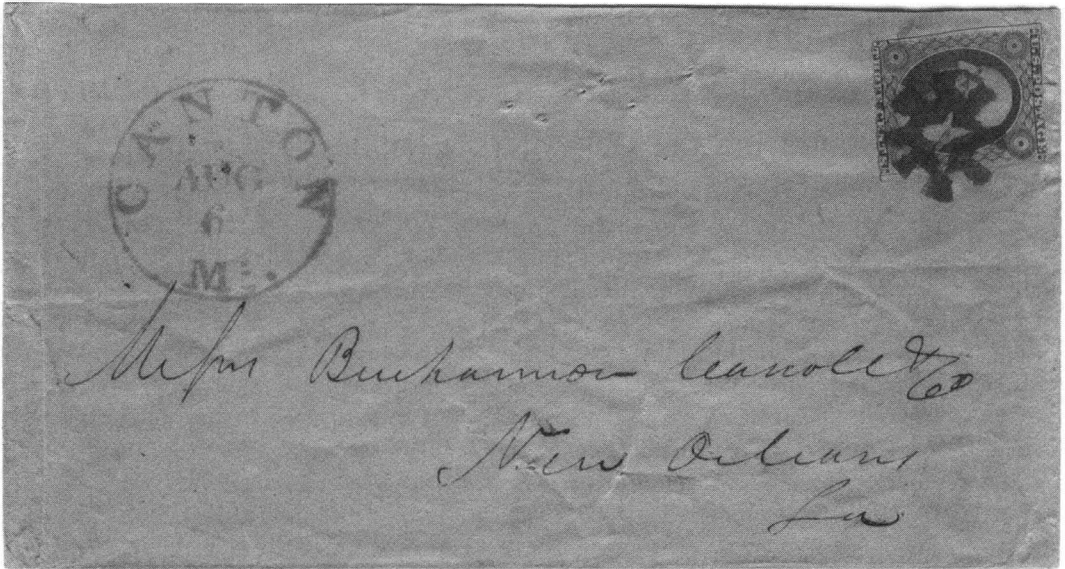 CANTON
AUG
6
Ms.
Messrs Buchannon Carroll & Co
New Orleans
La